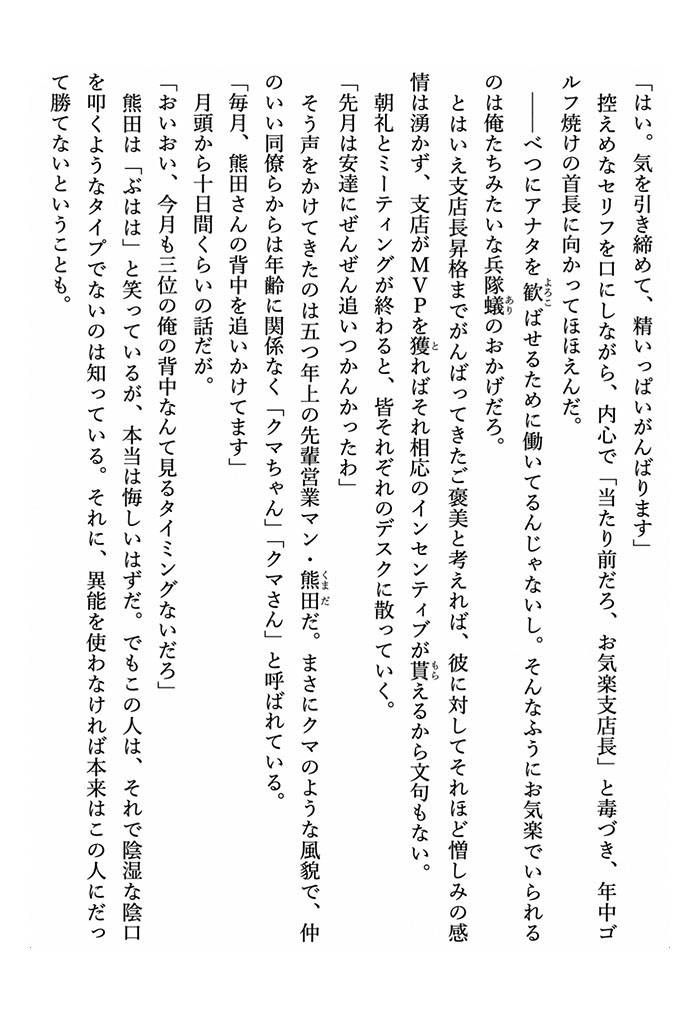 「はい。気を引き締めて、精いっぱいがんばります」
　控えめなセリフを口にしながら、内心で「当たり前だろ、お気楽支店長」と毒づき、年中ゴ
ルフ焼けの首長に向かってほほえんだ。
　――べつにアナタを歓ばせるために働いてるんじゃないし。そんなふうにお気楽でいられる
のは俺たちみたいな兵隊蟻のおかげだろ。
　とはいえ支店長昇格までがんばってきたご褒美と考えれば、彼に対してそれほど憎しみの感
情は湧かず、支店がＭＶＰを獲ればそれ相応のインセンティブが貰えるから文句もない。
　朝礼とミーティングが終わると、皆それぞれのデスクに散っていく。
「先月は安達にぜんぜん追いつかんかったわ」
　そう声をかけてきたのは五つ年上の先輩営業マン・熊田だ。まさにクマのような風貌で、仲
のいい同僚らからは年齢に関係なく「クマちゃん」「クマさん」と呼ばれている。
「毎月、熊田さんの背中を追いかけてます」
　月頭から十日間くらいの話だが。
「おいおい、今月も三位の俺の背中なんて見るタイミングないだろ」
　熊田は「ぶはは」と笑っているが、本当は悔しいはずだ。でもこの人は、それで陰湿な陰口
を叩くようなタイプでないのは知っている。それに、異能を使わなければ本来はこの人にだっ
て勝てないということも。